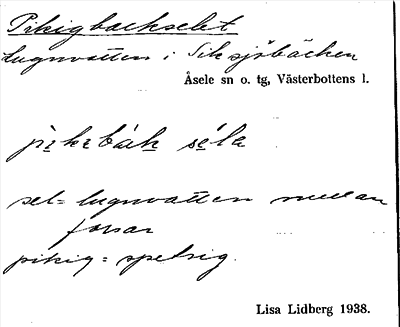 Pikigbackselet
Lugnvatten i Siksjöbäcken
Åsele sn o. tg, Västerbottens l.
pikibák séla
sel = lugnvatten mellan
forsar
pikig = spetsig.
Lisa Lidberg 1938.